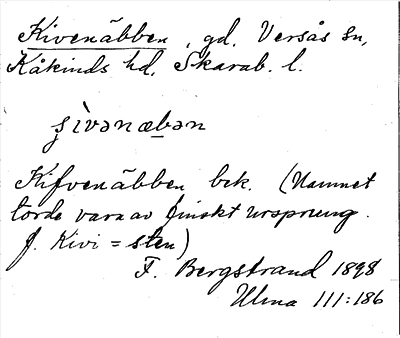 Kivenäbben, gd, Versås sn,
Kåkinds hd, Skarab. l.
ʂìvənæbən
Kifvenäbben bek. (Namnet
torde vara av finskt ursprung.
f. Kivi = sten)
F. Bergstrand 1898
Ulma 111:186